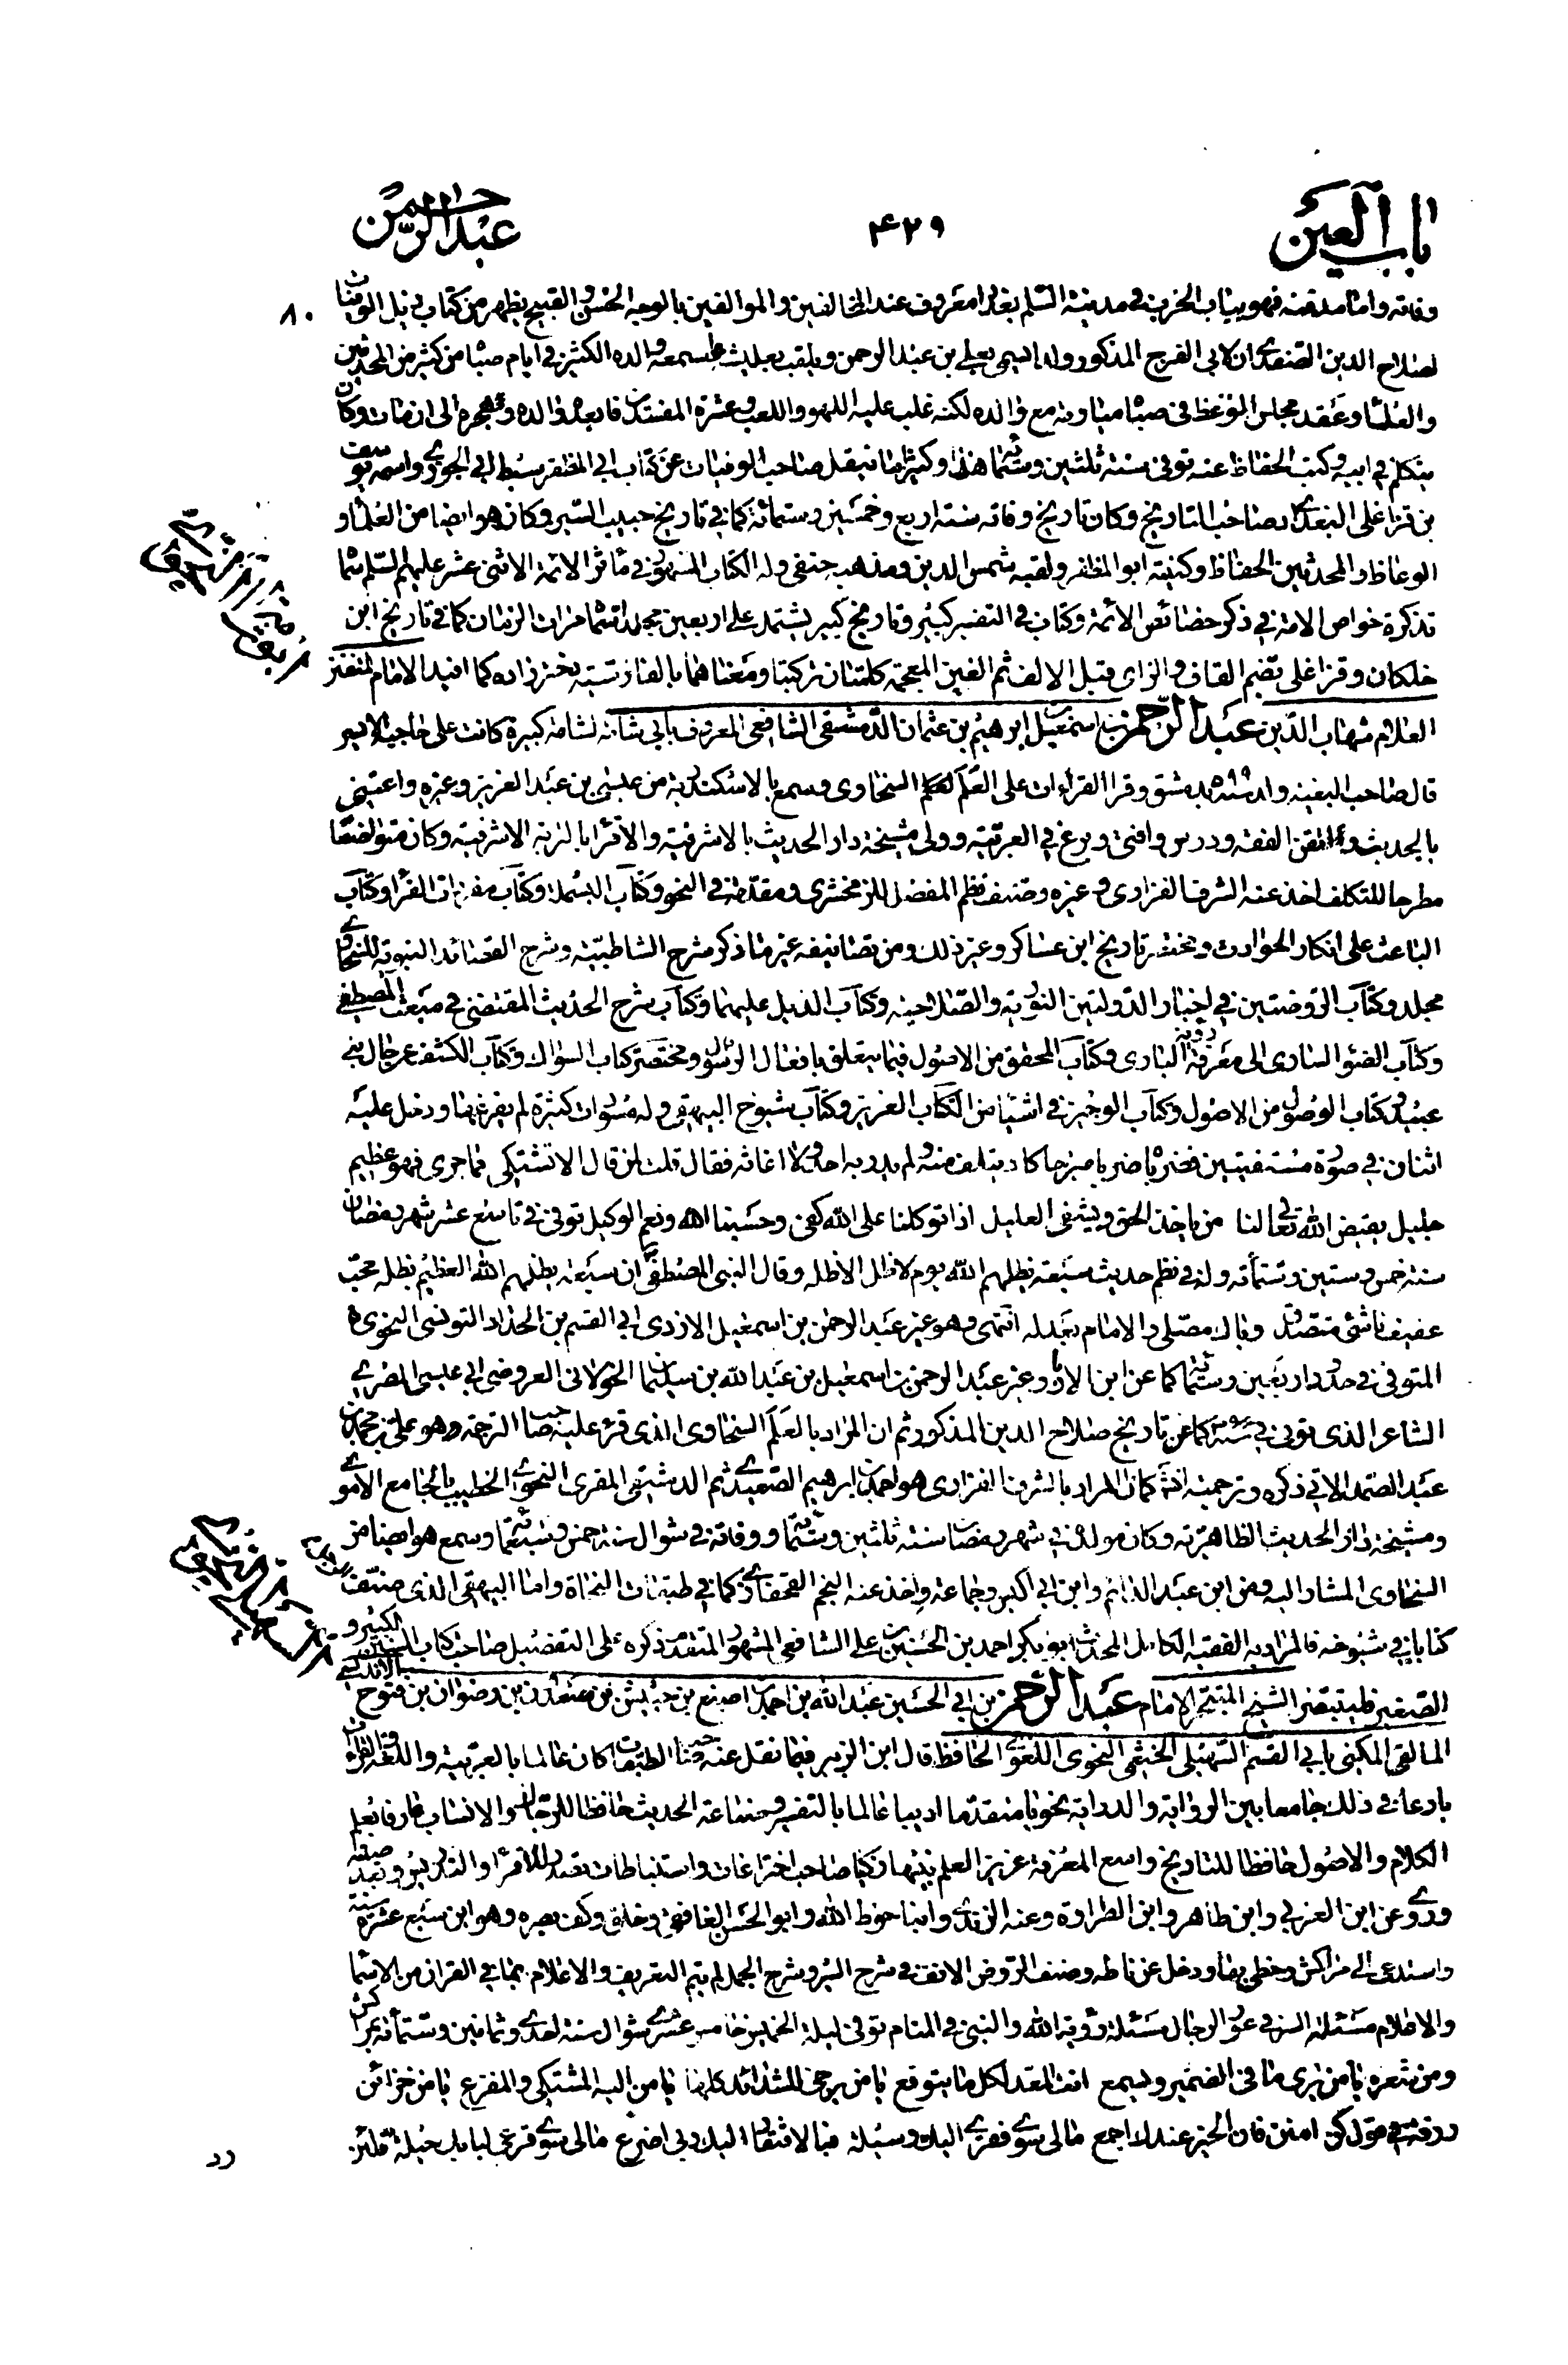 باب العين
۴۲۹
عبد الرحمن
وفاته واما مدفنه فهو بباب الحرب في مدينة السلم بغداد معروف عند المخالفين والموالفين بالوجه الحسن والقبيح يظهر من كتاب ذيل الوفيات
۸۰
لصلاح الدين الصفدى ان لابى الفرج المذكور ولدا يسمى بعلى بن عبد الرحمن ويلقب سمعه والده الكثير في ايام صباه من كثير من المحدثين
والعلماء وعقد مجلس الوعظ في صباه مع والده لكنه غلب عليه اللهو واللعب وعشرة المفسدين فابعده والده وهجره الى ان مات وكان
يتكلم في ابيه وكتب الحفاظ عنه توفى سنة ثلثين وستمائة هذا وكثيرا ما ينقل صاحب الوفيات عن كتاب ابى المظفر سبط ابن الجوزى واسمه يوسف
بن قزاغلى البغدادى صاحب التاريخ وكان تاريخ وفاته سنة اربع وخمسين وستمائة كما في تاريخ حبيب السير وكان هو ايضا من العلماء و
الوعاظ والمحدثين الحفاظ وكنيته ابو المظفر ولقبه شمس الدين ومذهبه حنفى وله الكتاب المشهور في مآثر الائمة الاثنى عشر عليهم السلم سماه
تذكرة خواص الامة في ذكر خصائص الائمة وكتاب في التفسير كبير وتاريخ كبير يشتمل على اربعين مجلدا سماه مرات الزمان كما في تاريخ ابن
خلكان وقزاغلى بضم القاف والزاى قبل الالف ثم الغين المعجمة كلمتان تركيتان ومعناهما بالفارسية دختر زاده كما افيد الامام المتفنن
العلام شهاب الدين عبد الرحمن بن اسمعيل بن ابرهيم بن عثمان الدمشقى الشافعى المعروف بابى شامة لشامة كبيرة كانت على حاجبه الايسر
قال صاحب البغية ولد سنة ۵۹۹ بدمشق وقرا القراءات على العلم السخاوى وسمع بالاسكندرية من عيسى بن عبد العزيز وغيره واعتنى
بالحديث واتقن الفقه ودرس وافتى وبرع في العربية وولى مشيخة دار الحديث بالاشرفية والاقراء بالتربة الاشرفية وكان متواضعا
مطرحا للتكلف اخذ عنه الشرف الفزارى وغيره وصنف نظم المفصل للزمخشرى ومقدمة في النحو وكتاب البسملة وكتاب مفردات القراء وكتاب
الباعث على انكار الحوادث ومختصر تاريخ ابن عساكر وغير ذلك ومن تصانيفه غير ما ذكر شرح الشاطبية وشرح القصائد النبوية للسخاوى
مجلد وكتاب الروضتين في اخبار الدولتين النورية والصلاحية وكتاب الذيل عليهما وكتاب شرح الحديث المقتفى في مبعث المصطفى
وكتاب الضوء السارى الى معرفة رؤية البارى وكتاب المحقق من الاصول فيما يتعلق بافعال الرسول ومختصر كتاب السؤاك وكتاب الكشف عن حال بنى
عبيد وكتاب الوصول من الاصول وكتاب الوجيز في اشياء من الكتاب العزيز وكتاب شيوخ البيهقى وله مسودات كثيرة لم يفرغ منها ودخل عليه
اثنان في صورة مستفتيين فضرباه ضربا مبرحا كاد يتلف منه ولم يدر به احد ولا اغاثه فقال قلت لمن قال الا تشتكى فما جرى فهو عظيم
جليل يقيض الله تعالى لنا من ياخذ الحق ويشفى الغليل اذا توكلنا على الله كفى وحسبنا الله ونعم الوكيل توفى في تاسع عشر شهر رمضان
سنة خمس وستين وستمائة وله في نظم حديث سبعة يظلهم الله يوم لا ظل الا ظله وقال النبى المصطفى ان سبعة يظلهم الله العظيم بظله محب
عفيف ناشئ متصدق وباك مصلى والامام بعدله انتهى وهو غير عبد الرحمن بن اسمعيل الازدى ابى القسم بن الحداد التونسى النحوى
المتوفى في حدود اربعين وستمائة كما عن ابن الابار وغير عبد الرحمن بن اسمعيل بن عبد الله بن سليمان الخولانى العروضى ابى عيسى المصرى
الشاعر الذى توفى في كما عن تاريخ صلاح الدين المذكور ثم ان المراد بالعلم السخاوى الذى قرء عليه صاحب الترجمة هو على بن محمد بن
عبد الصمد الاتى ذكره وترجمته انشاء كما ان المراد بالشرف الفزارى هو احمد بن ابرهيم الصعيدى ثم الدمشقى المقرى النحوى الخطيب بالجامع الاموى
ومشيخة دار الحديث الظاهرية وكان مولده في شهر رمضان سنة ثلثين وستمائة ووفاته في شوال سنة خمس وسبعمائة وسمع هو ايضا من
السخاوى المشار اليه ومن ابن عبد الدائم وابن ابى اليسر وجماعة واخذ عنه النجم القحفازى كما في طبقات النحاة واما البيهقى الذى صنف
كتابا في شيوخه فالمراد به الفقيه الكامل المحدث ابو بكر احمد بن الحسين بن على الشافعى المشهور المتقدم ذكره على التفصيل صاحب كتاب السنن الكبير و
الصغير فليتبصر الشيخ المتبحر الامام عبد الرحمن بن ابى الحسين عبد الله بن احمد بن اصبغ بن حبيش بن سعدون بن رضوان بن فتوح الاندلسى
المالقى المكنى بابى القسم السهيلى الخثعمى النحوى اللغوى الحافظ قال ابن الزبير فيما نقل عنه صاحب الطبقات كان عالما بالعربية واللغة والقراءات
بارعا في ذلك جامعا بين الرواية والدراية نحويا متقدما اديبا عالما بالتفسير وصناعة الحديث حافظا للرجال والانساب عارفا بعلم
الكلام والاصول حافظا للتاريخ واسع المعرفة غزير العلم نبيها ذكيا صاحب اختراعات واستنباطات تصدر للاقراء والتدريس وبعد صيته
وروى عن ابن العربى وابن طاهر وابن الطراوة وعنه الرندى وابنا حوط الله وابو الحسن الغافقى وخلق وكف بصره وهو ابن سبع عشرة سنة
واستدعى الى مراكش وحظى بها ودخل غرناطه وصنف الروض الانف في شرح السير وشرح الجمل لم يتم التعريف والاعلام بما في القران من الاسماء
والاعلام مسئلة السر في عور الدجال مسئلة رؤية الله والنبى في المنام توفى ليلة الخميس خامس عشرى شوال سنة احدى وثمانين وستمائة بمراكش
ومن شعره يا من يرى ما في الضمير ويسمع انت المعد لكل ما يتوقع يا من يرجى للشدائد كلها يا من اليه المشتكى والمفزع يا من خزائن
رزقه في قول كن امنن فان الخير عندك اجمع مالى سوى فقرى اليك وسيلة فبالافتقار اليك ربى اضرع مالى سوى قرعى لبابك حيلة فلئن
رد